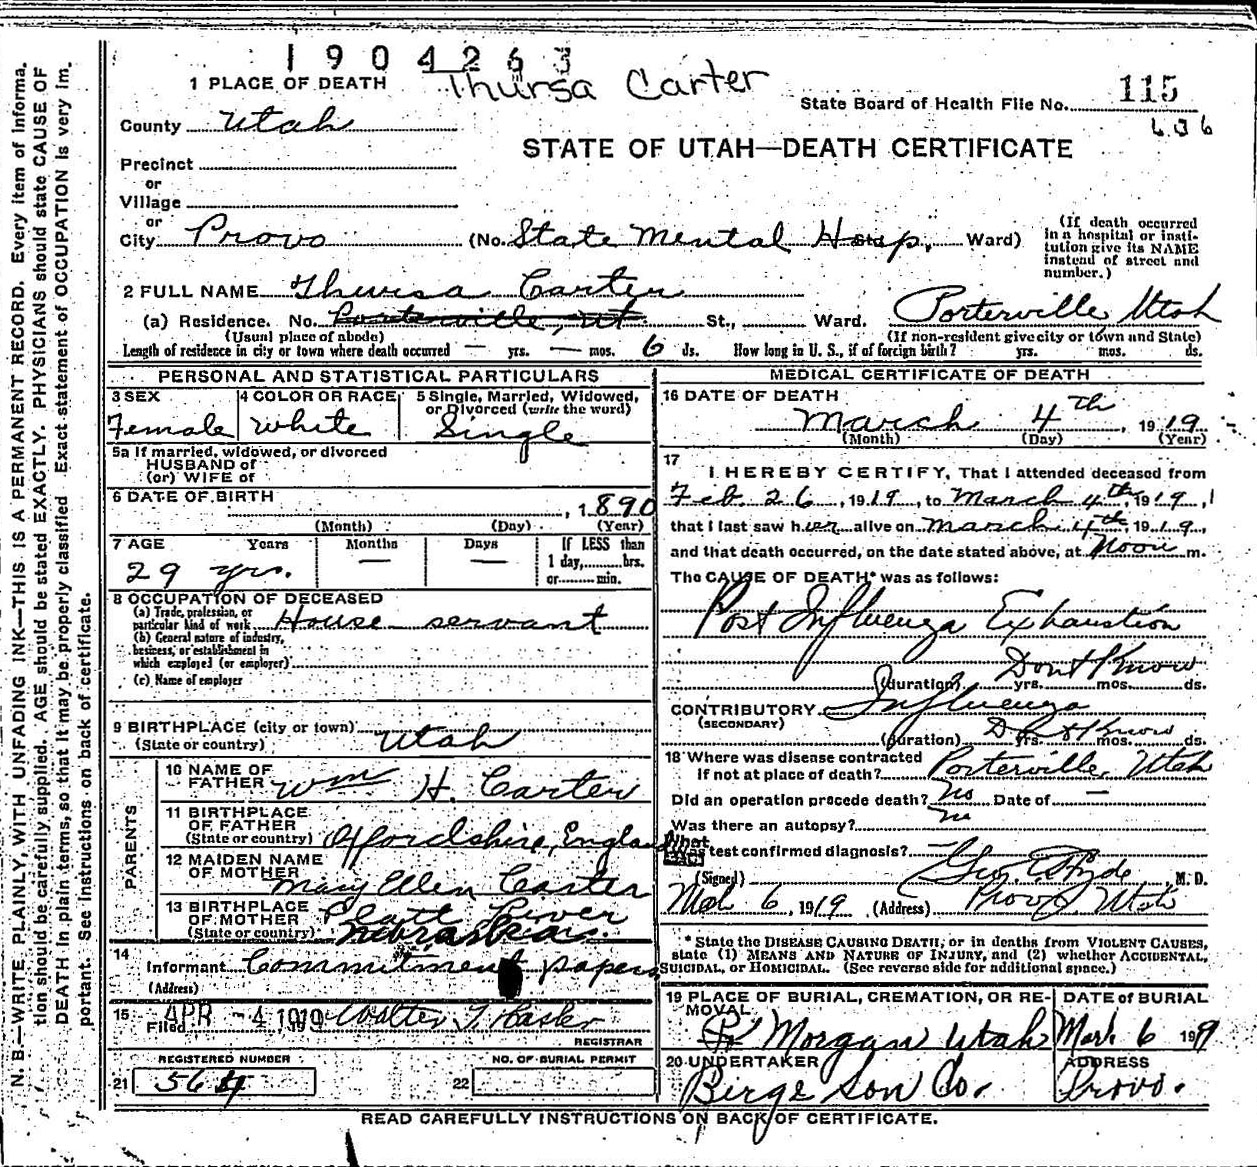 1904263
Thursa Carter
1 PLACE OF DEATH
State Board of Health File No. 115
636
County Utah
STATE OF UTAH—DEATH CERTIFICATE
Precinct
or
Village
or
City Provo (No. State Mental Hosp, Ward)
(If death occurred in a hospital or institution give its NAME instead of street and number.)
2 FULL NAME Thursa Carter
(a) Residence. No. Porterville, Ut St., Ward. Porterville Utah
(Usual place of abode) (If non-resident give city or town and State)
Length of residence in city or town where death occurred — yrs. — mos. 6 ds. How long in U. S., if of foreign birth? yrs. mos. ds.
PERSONAL AND STATISTICAL PARTICULARS
3 SEX
Female
4 COLOR OR RACE
White
5 Single, Married, Widowed, or Divorced (write the word)
Single
5a If married, widowed, or divorced
HUSBAND of
(or) WIFE of
6 DATE OF BIRTH
, 1890
(Month) (Day) (Year)
7 AGE Years Months Days If LESS than
1 day, hrs.
or min.
29 yrs. — —
8 OCCUPATION OF DECEASED
(a) Trade, profession, or
particular kind of work House servant
(b) General nature of industry,
business, or establishment in
which employed (or employer)
(c) Name of employer
9 BIRTHPLACE (city or town)
(State or country) Utah
PARENTS
10 NAME OF
FATHER Wm H. Carter
11 BIRTHPLACE
OF FATHER
(State or country) England
12 MAIDEN NAME
OF MOTHER Mary Ellen Carter
13 BIRTHPLACE
OF MOTHER Platt River
(State or country) Nebraska
14
Informant Commitment papers
(Address)
15
Filed APR -4 1919 Walter T. Hasler
REGISTRAR
REGISTERED NUMBER
21 564
NO. OF BURIAL PERMIT
22
MEDICAL CERTIFICATE OF DEATH
16 DATE OF DEATH
March 4th, 1919
(Month) (Day) (Year)
17
I HEREBY CERTIFY, That I attended deceased from
Feb. 26, 1919, to March 4th, 1919,
that I last saw her alive on March 4th, 1919,
and that death occurred, on the date stated above, at Noon m.
The CAUSE OF DEATH* was as follows:
Post Influenza Exhaustion
Dont Know
(duration) yrs. mos. ds.
CONTRIBUTORY Influenza
(SECONDARY)
Dont Know
(duration) yrs. mos. ds.
18 Where was disease contracted
if not at place of death? Porterville, Utah
Did an operation precede death? No Date of —
Was there an autopsy? no
What test confirmed diagnosis? —
(Signed) Geo. E. Hyde M. D.
Mch 6, 1919 (Address) Provo, Utah
* State the DISEASE CAUSING DEATH, or in deaths from VIOLENT CAUSES,
state (1) MEANS AND NATURE OF INJURY, and (2) whether ACCIDENTAL,
SUICIDAL, or HOMICIDAL. (See reverse side for additional space.)
19 PLACE OF BURIAL, CREMATION, OR RE-
MOVAL
Morgan Utah
DATE of BURIAL
Mch. 6 1919
20 UNDERTAKER
Birge Son Co.
ADDRESS
Provo.
READ CAREFULLY INSTRUCTIONS ON BACK OF CERTIFICATE.
N. B.—WRITE PLAINLY, WITH UNFADING INK—THIS IS A PERMANENT RECORD. Every item of informa-
tion should be carefully supplied. AGE should be stated EXACTLY. PHYSICIANS should state CAUSE OF
DEATH in plain terms, so that it may be properly classified. Exact statement of OCCUPATION is very im-
portant. See instructions on back of certificate.